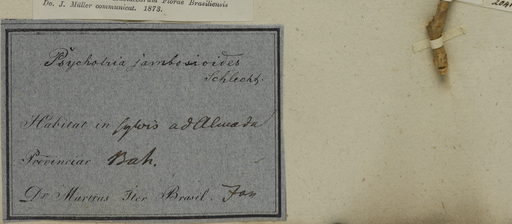 Florae Brasiliensis
Dr. J. Müller communicat. 1873.
Psychotria jambosioides
Schlecht.
Habitat in sylvis ad Almada
Provinciae Bah.
Dr Martius Iter Brasil.